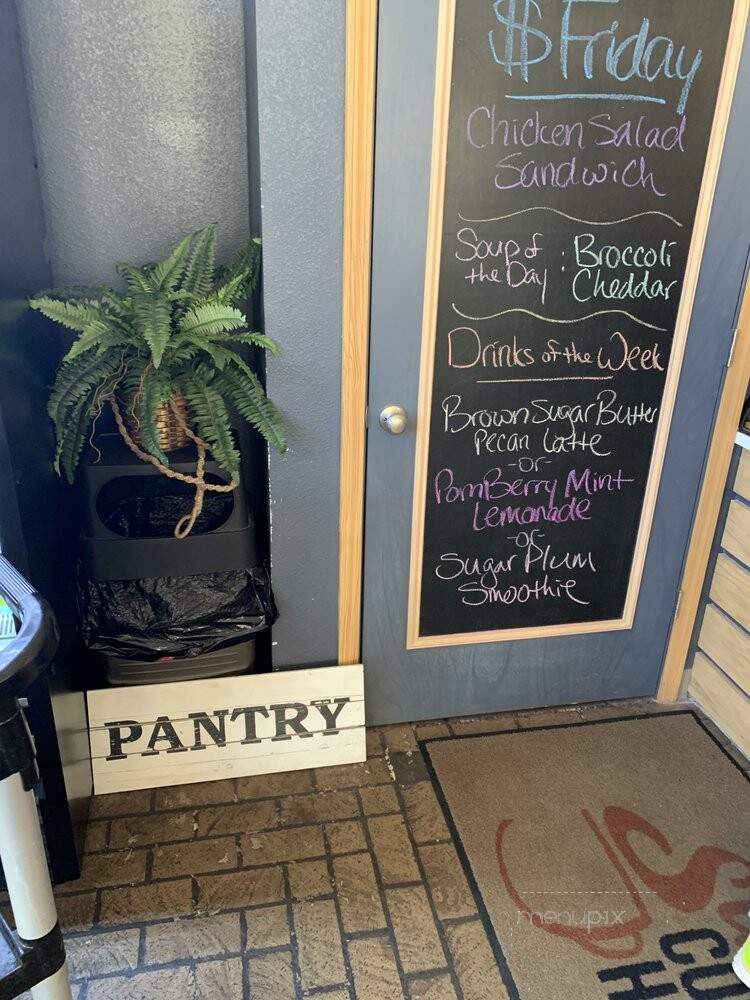 $Friday
Chicken Salad
Sandwich
Soup of
the Day : Broccoli
Cheddar
Drinks of the Week
Brown Sugar Butter
Pecan Latte
-or-
PomBerry Mint
Lemonade
-or-
Sugar Plum
Smoothie
PANTRY
menupix